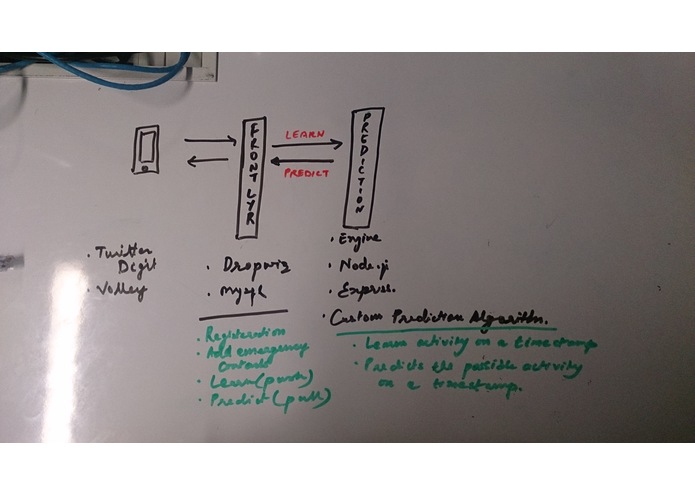 FRONT LYR
PREDICTION
LEARN
PREDICT
• Twitter
Digit
• Volley
• Dropwiz
• mysql
• Registeration
• Add emergency
Contacts
• Learn (push)
• Predict (pull)
• Engine
• Node.js
• Express.
• Custom Prediction Algorithm.
• Learn activity on a timestamp
• Predicts the possible activity
on a timestamp.